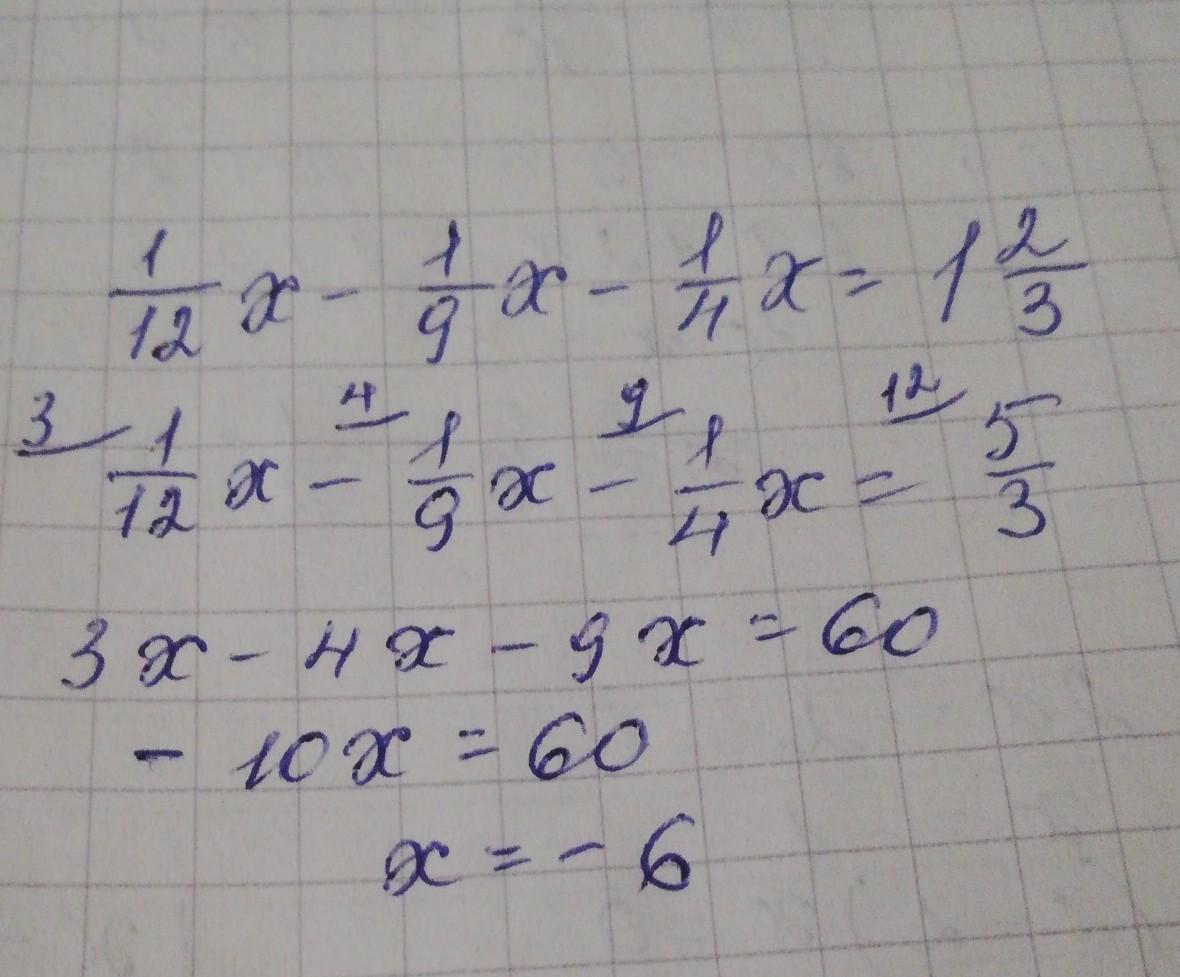 1/12 x - 1/9 x - 1/4 x = 1 2/3
3 1/12 x - 4 1/9 x - 9 1/4 x = 12 5/3
3x - 4x - 9x = 60
- 10x = 60
x = - 6